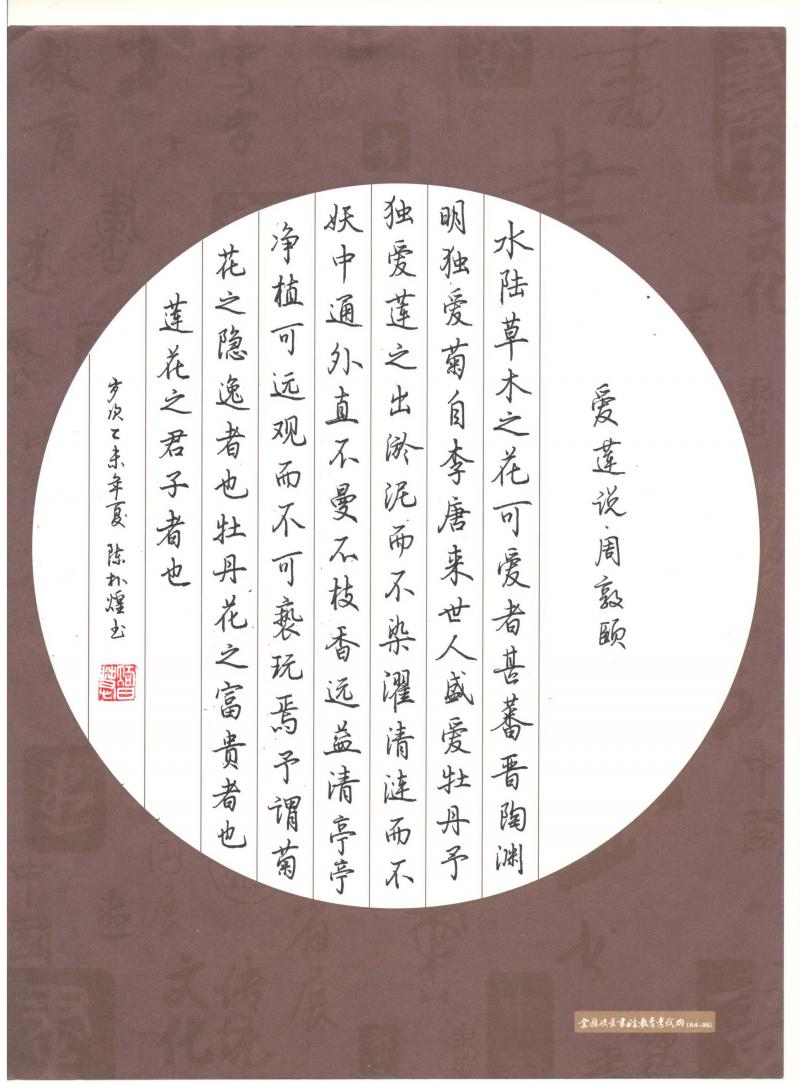 爱莲说·周敦颐
水陆草木之花可爱者甚蕃晋陶渊
明独爱菊自李唐来世人盛爱牡丹予
独爱莲之出淤泥而不染濯清涟而不
妖中通外直不曼不枝香远益清亭亭
净植可远观而不可亵玩焉予谓菊
花之隐逸者也牡丹花之富贵者也
莲花之君子者也
岁次乙未年夏 陈煌书
(A4-06)